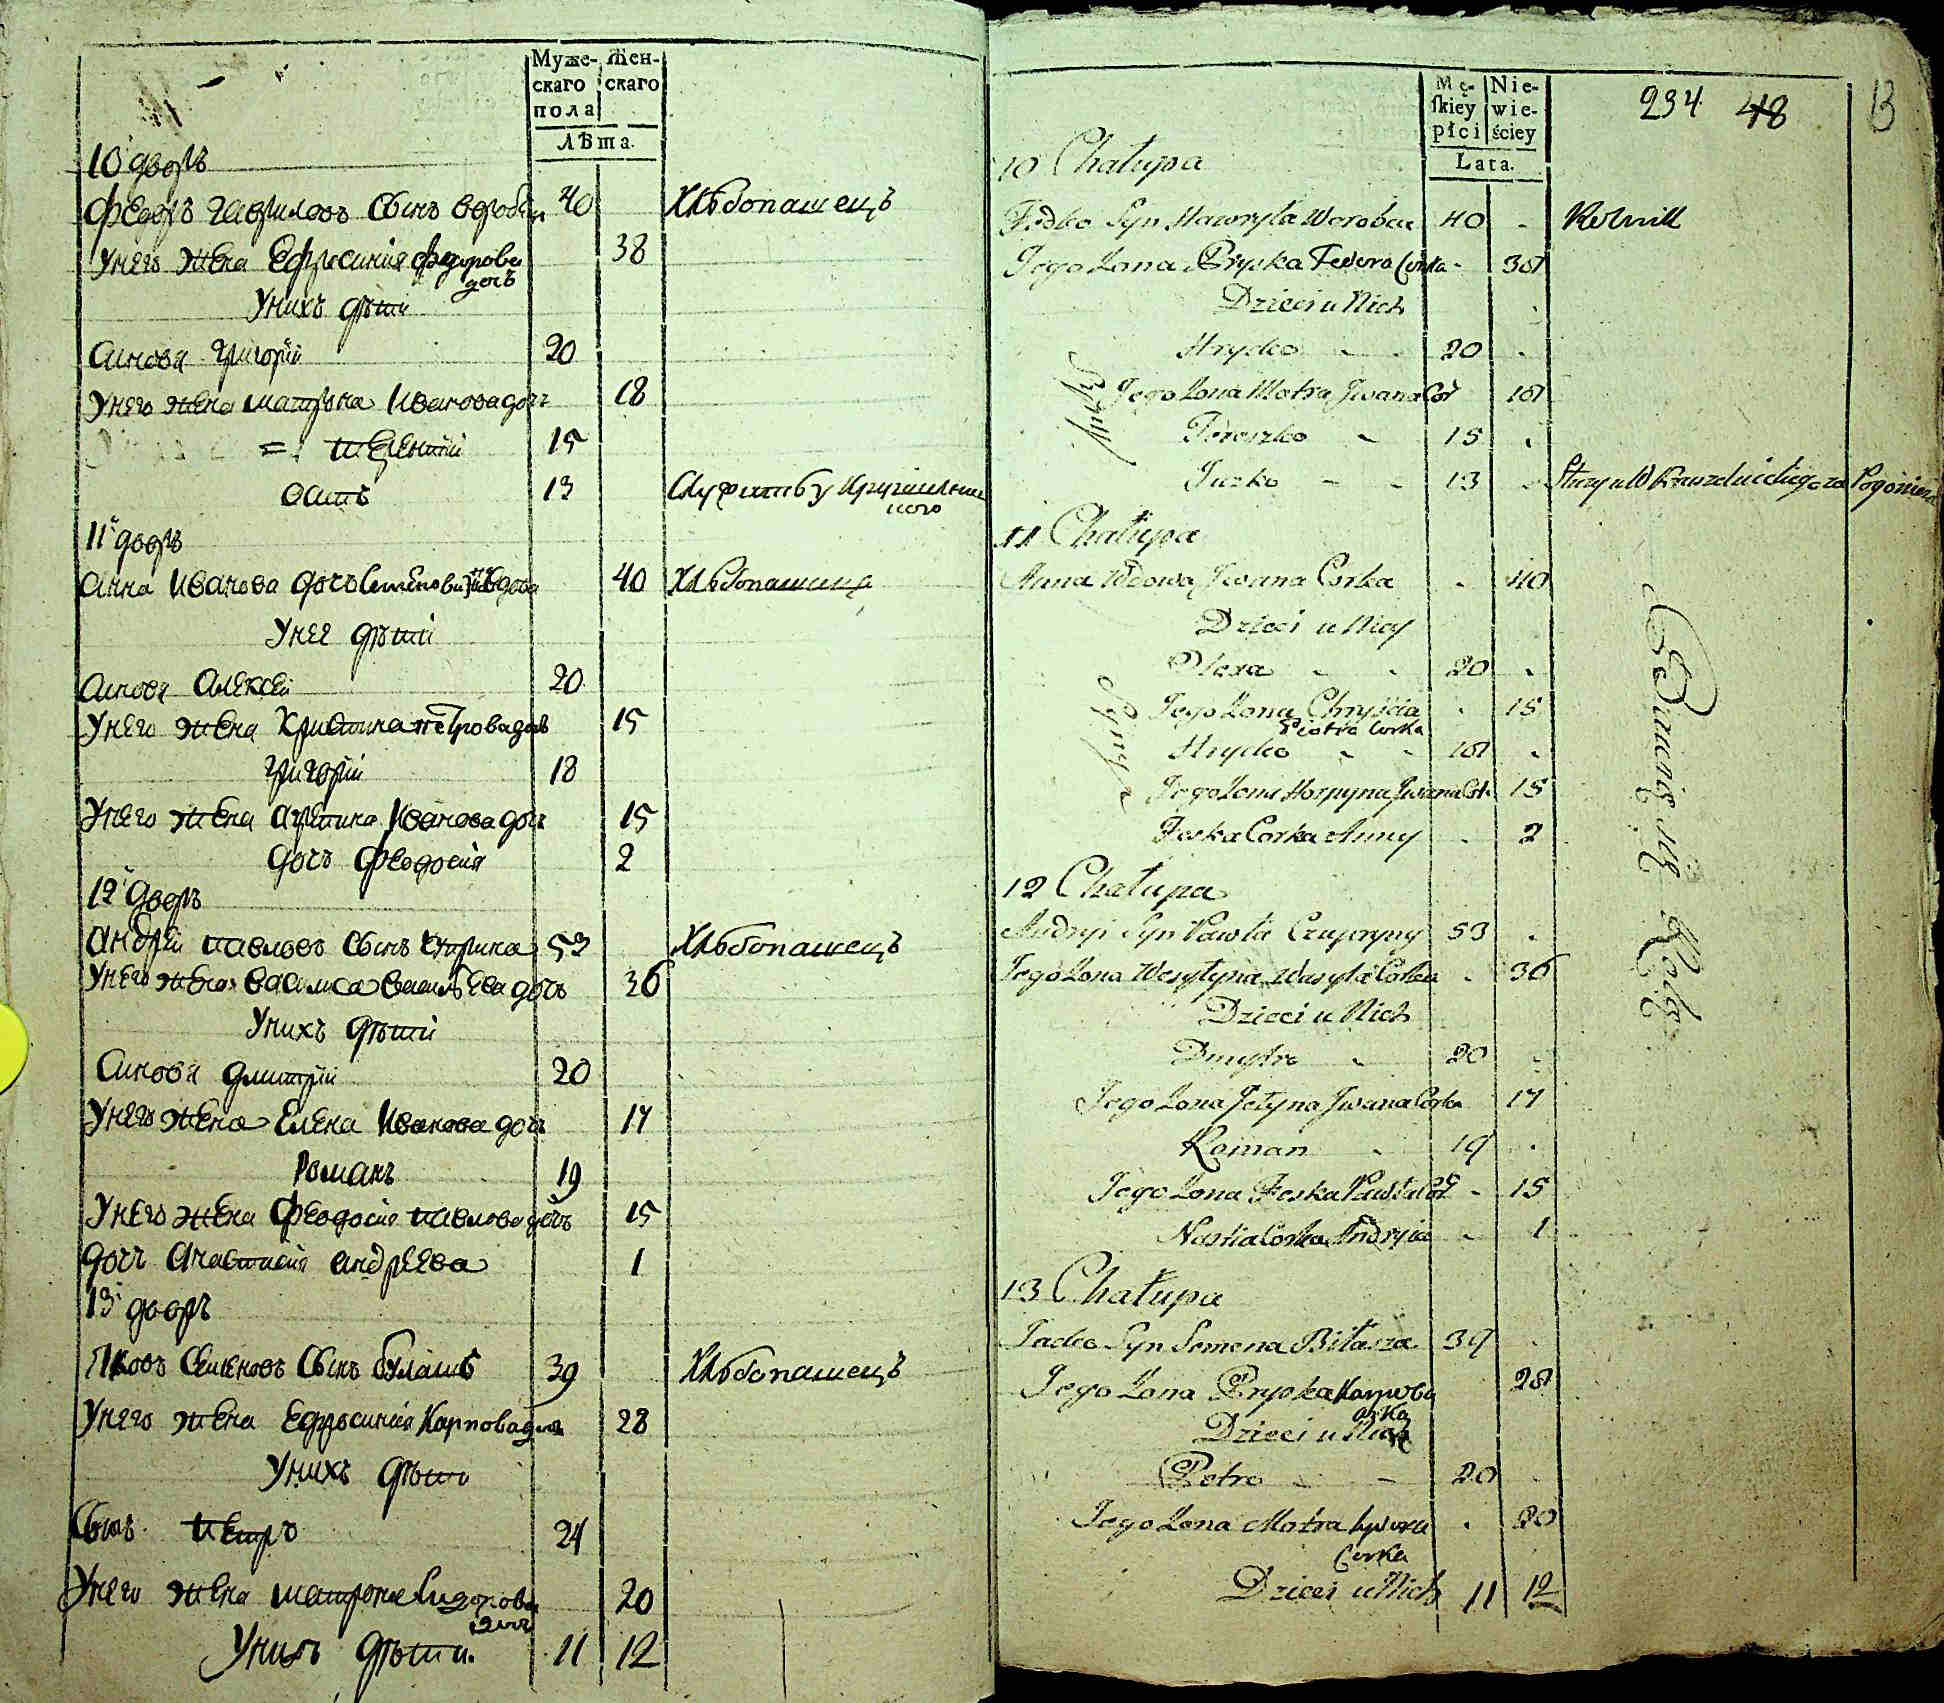 Муже-
скаго
пола
Жен-
скаго
Лѣта.
10 дворъ
Федоръ Гавриловъ сынъ 40 Хлѣбопашецъ
У него жена Ефросинія Федорова 38
дочь
У нихъ дѣти
Синовя Григорій 20
У него жена Матрона Иванова дочь 18
= Терентій 15
Осипъ 13 Служитъ у
11 дворъ
Анна Иванова дочь вдова 40 Хлѣбопашица
У нее дѣти
Синовя Алексей 20
У него жена Христина Петрова дочь 15
Григорій 18
У него жена Иванова дочь 15
дочь Феодосія 2
12 дворъ
Андрей Павловъ сынъ 53 Хлѣбопашецъ
У него жена Василиса Васильева дочь 36
У нихъ дѣти
Синовя Дмитрій 20
У него жена Елена Иванова дочь 17
Романъ 19
У него жена Феодосія Павлова дочь 15
дочь Анастасія Андреева 1
13 дворъ
Яковъ Семеновъ сынъ 39 Хлѣбопашецъ
У него жена Ефросинія Карповa дочь 28
У нихъ дѣти
Сынъ Петръ 21
У него жена Матрона 20
дочь
У нихъ дѣти. 11 12
Mę-
ſkiey
płci
Nie-
wie-
ściey
Lata.
234 48 13
10 Chałupa
Fedko Syn Hawryła Worobca 40 - Rolnik
Jego Żona Pryska Fedora Corka - 38
Dzieci u Nich
Synowie
Hrycko - - 20 -
Jego Żona Motra Jwana Cor 18
Tereszko - 15 -
Juzko - - 13 -
11 Chałupa
Anna Wdowa Jwana Corka - 40
Dzieci u Niey
Synowie
Olexa - - 20 -
Jego Żona Chryścia - 15
Piotra Corka
Hrycko - - 18 -
Jego Żona Horpyna Jwana Cor 15
Feska Corka Anny - 2
12 Chałupa
Andryi Syn Pawła Czupryny 53 -
Jego Żona Wasyłyna Wasyla Corka - 36
Dzieci u Nich
Dmytro - 20 -
Jego Żona Jwana Corka 17
Roman - 19 -
Jego Żona Feska Pawła Cor - 15
Nastia Corka Andryia - 1
13 Chałupa
Jacko Syn Semena Biłasza 39 -
Jego Żona Pryska Karpowa 28
Corka
Dzieci u Nich
Petro - - 20 -
Jego Żona Motra - 20
Corka
Dzieci u Nich 11 12